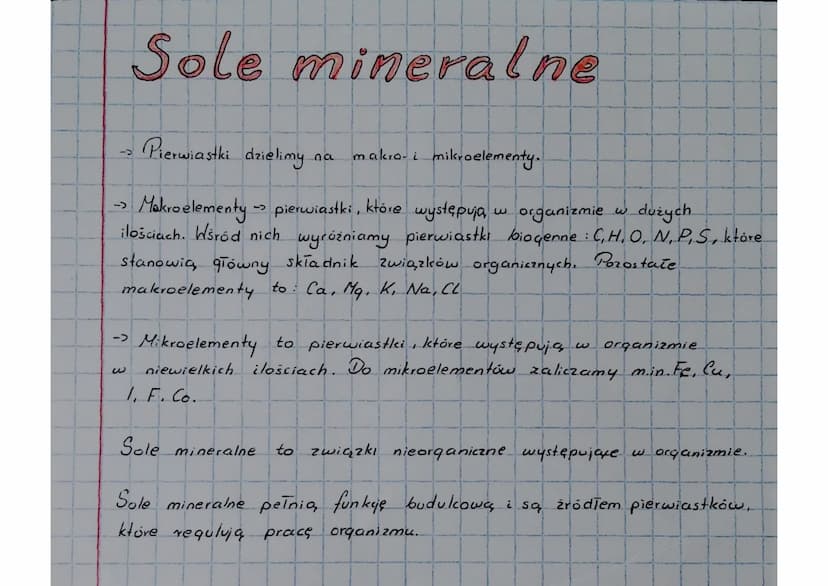 Sole mineralne
-> Pierwiastki dzielimy na makro- i mikroelementy.
-> Makroelementy -> pierwiastki, które występują w organizmie w dużych
ilościach. Wśród nich wyróżniamy pierwiastki biogenne : C, H, O, N, P, S, które
stanowią główny składnik związków organicznych. Pozostałe
makroelementy to : Ca, Mg, K, Na, Cl
-> Mikroelementy to pierwiastki, które występują w organizmie
w niewielkich ilościach. Do mikroelementów zaliczamy m.in. Fe, Cu,
I, F. Co.
Sole mineralne to związki nieorganiczne występujące w organizmie.
Sole mineralne pełnią funkję budulcową i są źródłem pierwiastków,
które regulują pracę organizmu.